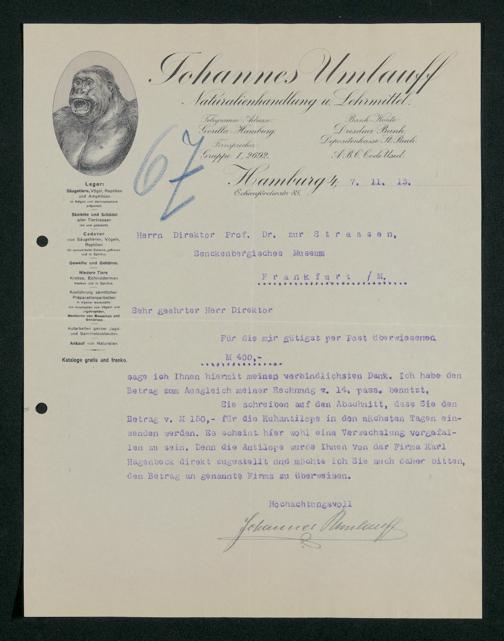 Johannes Umlauff
Naturalienhandlung u. Lehrmittel.
Telegramm-Adresse:
Gorilla Hamburg.
Fernsprecher:
Gruppe 1, 2692.
Bank-Konto:
Dresdner Bank,
Depositenkasse St. Pauli.
A.B.C. Code Used.
Hamburg 4, 7. 11. 13.
67
Lager:
Säugetiere, Vögel, Reptilien
und Amphibien
Skelette und Schädel
aller Tierklassen
Cadaver
von Säugetieren, Vögeln,
Reptilien
Geweihe und Gehörne.
Niedere Tiere
Krebse, Echinodermen
Ausführung sämtlicher
Präparationsarbeiten
Ankauf von Naturalien
Kataloge gratis und franko.
Herrn Direktor Prof. Dr. zur Strassen,
Senckenbergisches Museum
Frankfurt /M.
Sehr geehrter Herr Direktor
Für die mir gütigst per Post überwiesenen
M 400,-
sage ich Ihnen hiermit meinen verbindlichsten Dank. Ich habe den
Betrag zum Ausgleich meiner Rechnung v. 14. pass. benutzt,
Sie schreiben auf den Abschnitt, dass Sie den
Betrag v. M 150,- für die Kuhantilope in den nächsten Tagen ein-
senden werden. Es scheint hier wohl eine Verwechslung vorgefal-
len zu sein. Denn die Antilope wurde Ihnen von der Firma Karl
Hagenbeck direkt zugestellt und möchte ich Sie auch daher bitten,
den Betrag an genannte Firma zu überweisen.
Hochachtungsvoll
Johannes Umlauff